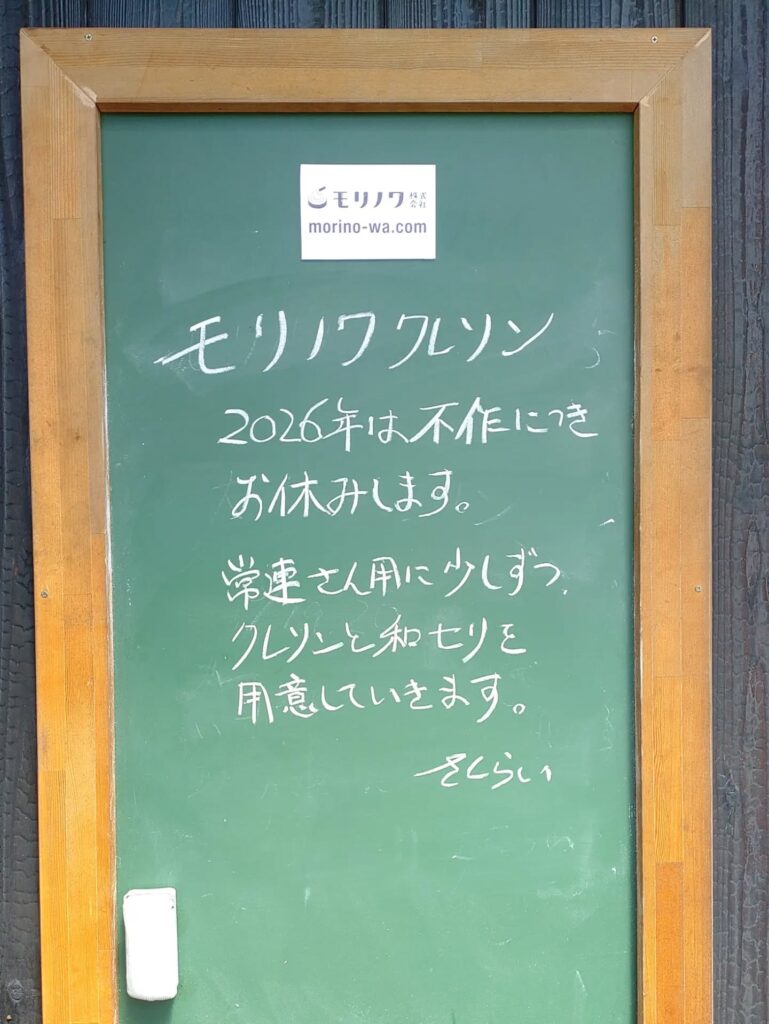 モリノワ 株式会社
morino-wa.com
モリノワクレソン
2026年は不作につき
お休みします。
常連さん用に少しずつ、
クレソンと和セリを
用意していきます。
さくらい